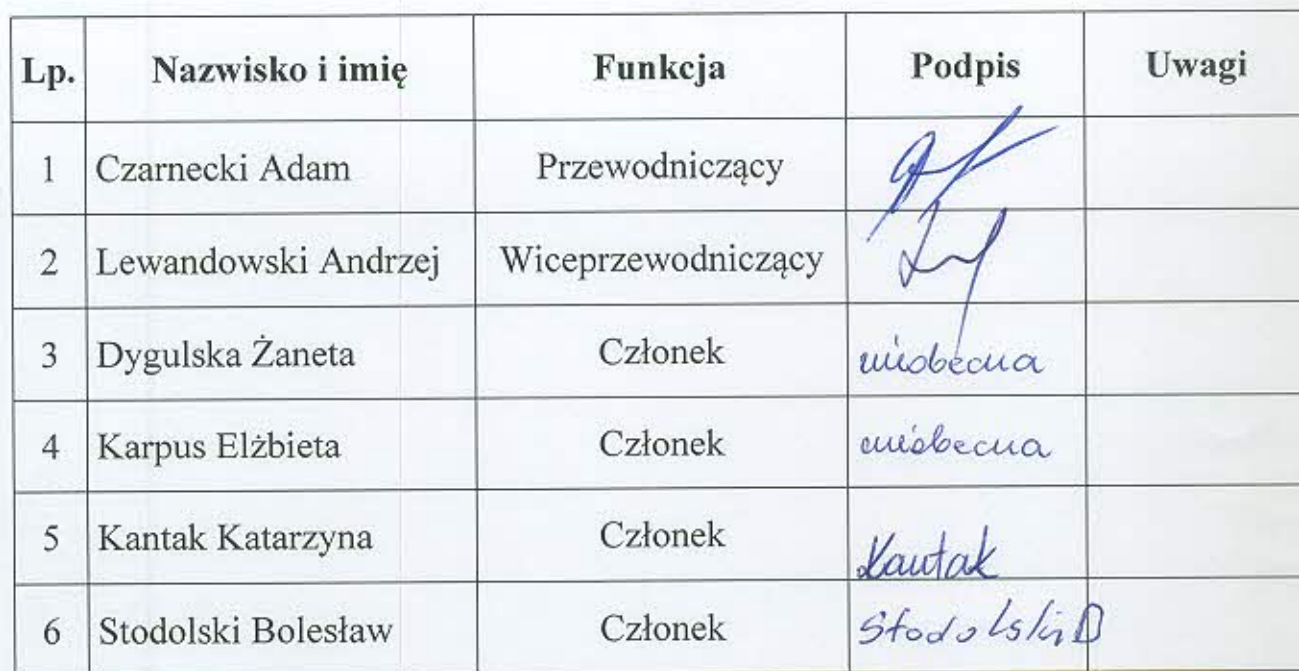 Lp. Nazwisko i imię Funkcja Podpis Uwagi
1 Czarnecki Adam Przewodniczący
2 Lewandowski Andrzej Wiceprzewodniczący
3 Dygulska Żaneta Członek nieobecna
4 Karpus Elżbieta Członek nieobecna
5 Kantak Katarzyna Członek Kantak
6 Stodolski Bolesław Członek Stodolski B